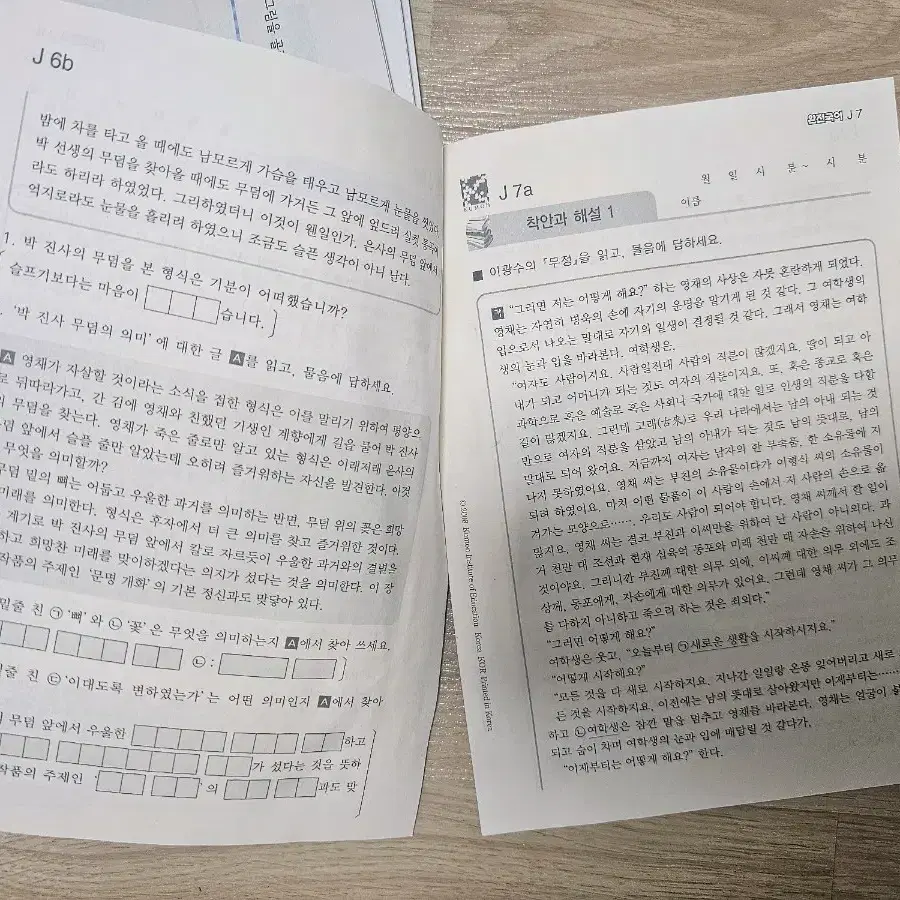 그림을
J 6b
밤에 차를 타고 올 때에도 남모르게 가슴을 태우고 남모르게 눈물을
박 선생의 무덤을 찾아올 때에도 무덤에 가거든 그 앞에 엎드려 실컷
라도 하리라 하였었다. 그리하였더니 이것이 웬일인가, 은사의 무덤 앞에서
억지로라도 눈물을 흘리려 하였으니 조금도 슬픈 생각이 아니 난다.
1. 박 진사의 무덤을 본 형식은 기분이 어떠했습니까?
슬프기보다는 마음이 습니다.
'박 진사 무덤의 의미'에 대한 글 A를 읽고, 물음에 답하세요.
A 영채가 자살할 것이라는 소식을 접한 형식은 이를 말리기 위하여 평양으
로 뒤따라가고, 간 김에 영채와 친했던 기생인 계향에게 길을 물어 박 진사
의 무덤을 찾는다. 영채가 죽은 줄로만 알고 있는 형식은 이래저래 은사의
무덤 앞에서 슬플 줄만 알았는데 오히려 즐거워하는 자신을 발견한다. 이것
무엇을 의미할까?
무덤 밑의 뼈는 어둡고 우울한 과거를 의미하는 반면, 무덤 위의 꽃은 희망
미래를 의미한다. 형식은 후자에서 더 큰 의미를 찾고 즐거워한 것이다.
계기로 박 진사의 무덤 앞에서 칼로 자르듯이 우울한 과거와의 결별을
하고 희망찬 미래를 맞이하겠다는 의지가 섰다는 것을 의미한다. 이 장
작품의 주제인 '문명 개화'의 기본 정신과도 맞닿아 있다.
밑줄 친 ㉠'뼈'와 ㉡'꽃'은 무엇을 의미하는지 A에서 찾아 쓰세요.
㉡ :
줄 친 ㉢'이대도록 변하였는가'는 어떤 의미인지 A에서 찾아
무덤 앞에서 우울한 하고
가 섰다는 것을 뜻하
작품의 주제인 ' '의 과도 맞
완전국어 J 7
J 7a
월 일 시 분~ 시 분
이름
착안과 해설 1
■ 이광수의 「무정」을 읽고, 물음에 답하세요.
"그러면 저는 어떻게 해요?" 하는 영채의 사상은 자못 혼란하게 되었다.
영채는 자연히 병욱의 손에 자기의 운명을 맡기게 된 것 같다. 그 여학생의
입으로서 나오는 말대로 자기의 일생이 결정될 것 같다. 그래서 영채는 여학
생의 눈과 입을 바라본다. 여학생은,
"여자도 사람이지요. 사람일진대 사람의 직분이 많겠지요. 딸이 되고 아
내가 되고 어머니가 되는 것도 여자의 직분이지요. 또, 혹은 종교로 혹은
과학으로 혹은 예술로 혹은 사회나 국가에 대한 일로 인생의 직분을 다할
길이 많겠지요. 그런데 고래(古來)로 우리 나라에서는 남의 아내 되는 것
만으로 여자의 직분을 삼았고 남의 아내가 되는 것도 남의 뜻대로, 남의
말대로 되어 왔어요. 지금까지 여자는 남자의 한 부속품, 한 소유물에 지
나지 못하였어요. 영채 씨는 부친의 소유물이다가 이형식 씨의 소유물이
되려 하였어요. 마치 어떤 물품이 이 사람의 손에서 저 사람의 손으로 옮
겨가는 모양으로……. 우리도 사람이 되어야 합니다. 영채 씨께서 할 일이
많지요. 영채 씨는 결코 부친과 이씨만을 위하여 난 사람이 아니외다. 과
거 천만 대 조선과 현재 십육억 동포와 미래 천만 대 자손을 위하여 나신
것이야요. 그러니깐 부친께 대한 의무 외에, 이씨께 대한 의무 외에도 조
상께, 동포에게, 자손에게 대한 의무가 있어요. 그런데 영채 씨가 그 의무
를 다하지 아니하고 죽으려 하는 것은 죄외다."
"그러면 어떻게 해요?"
여학생은 웃고, "오늘부터 ㉠새로운 생활을 시작하시지요."
"어떻게 시작해요?"
"모든 것을 다 새로 시작하지요. 지나간 일일랑 온통 잊어버리고 새로
든 것을 시작하지요. 이전에는 남의 뜻대로 살아왔지만 이제부터는……
하고 ㉡여학생은 잠깐 말을 멈추고 영채를 바라본다. 영채는 얼굴이
되고 숨이 차며 여학생의 눈과 입에 매달릴 것 같다가,
"이제부터는 어떻게 해요?" 한다.